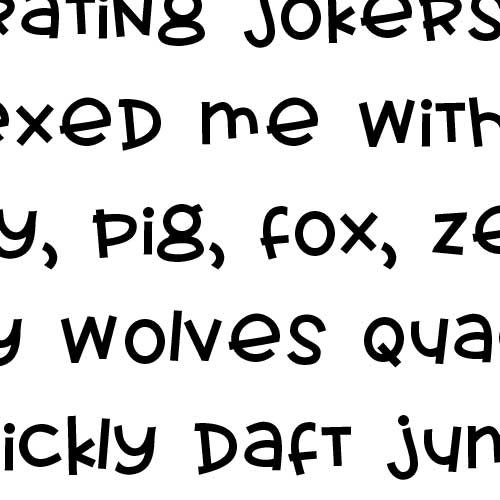 rating jokers
exed me with
y, pig, fox, ze
y wolves qua
ickly daft jum